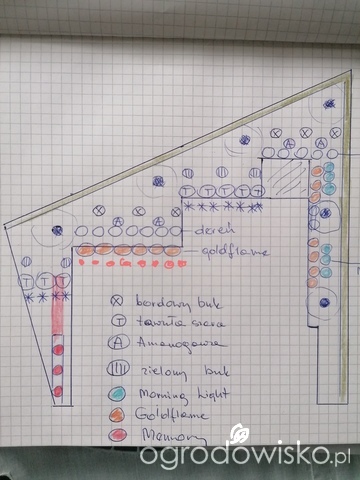 dereń
goldflame
bordowy buk
T tawuła szara
A Amanogawa
zielony buk
Morning light
Goldflame
Memory
ogrodowisko.pl